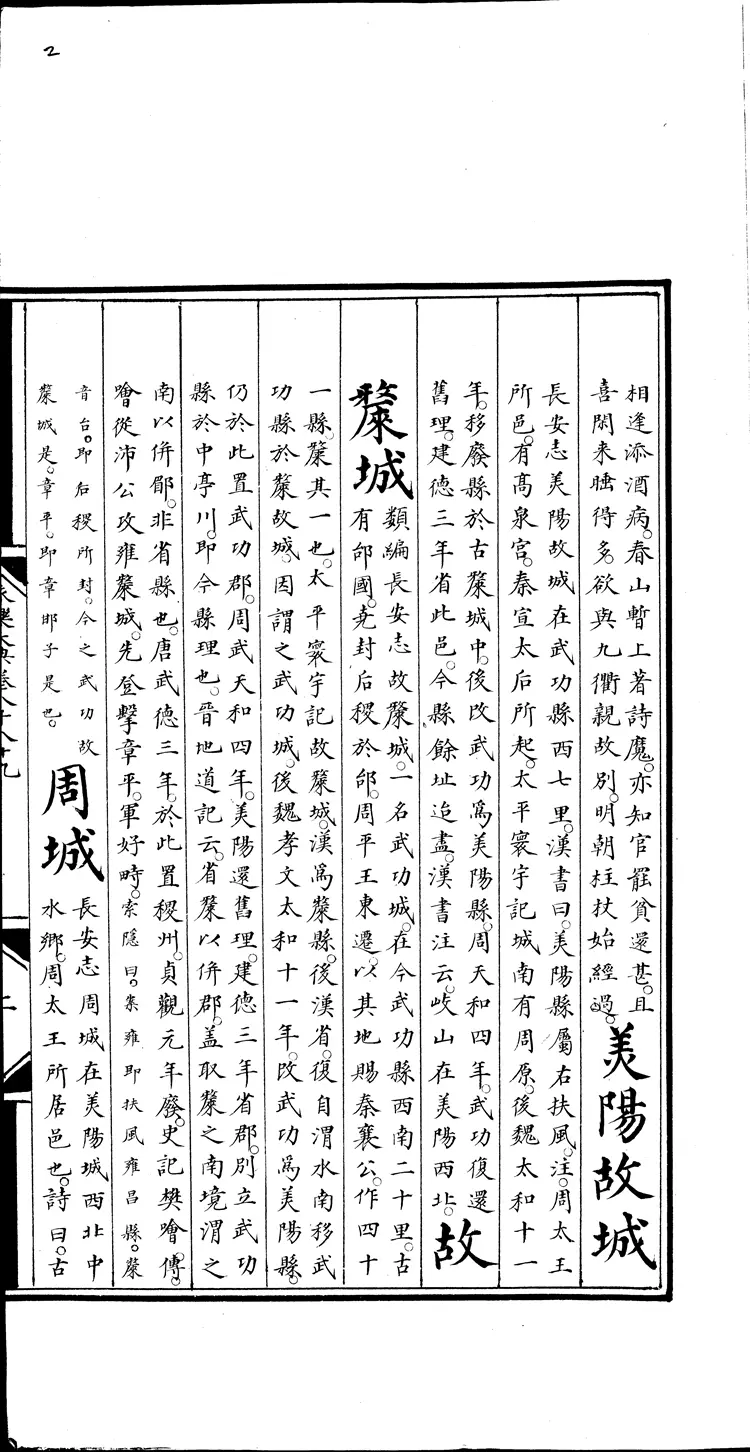 2
相逢添酒病。春山暫上著詩魔。亦知官罷貧還甚。且
喜閑来睡得多。欲與九衢親故别。明朝柱杖始經過。
羙陽故城
長安志羙陽故城在武功縣西七里。漢書曰。羙陽縣屬右扶風。注。周太王
所邑。有髙泉宫。秦宣太后所起。太平寰宇記城南有周原。後魏太和十一
年。移廢縣於古斄城中。後改武功爲羙陽縣。周天和四年。武功復還
舊理。建德三年省此邑。今縣餘址迨盡。漢書注云。岐山在羙陽西北。
故
斄城
類編長安志故斄城。一名武功城。在今武功縣西南二十里。古
有邰國。堯封后稷於邰。周平王東遷。以其地賜秦襄公。作四十
一縣。斄其一也。太平寰宇記故斄城。漢爲斄縣。後漢省。復自渭水南移武
功縣於斄故城。因謂之武功城。後魏孝文太和十一年。改武功爲羙陽縣。
仍於此置武功郡。周武天和四年。羙陽還舊理。建德三年省郡。别立武功
縣於中亭川。即今縣理也。晉地道記云。省斄以併郡。盖取斄之南境謂之
南以併郿。非省縣也。唐武德三年。於此置稷州。貞觀元年廢。史記樊噲傳。
噲從沛公攻雍斄城。先登擊章平。軍好時。索隱曰。案雍即扶風雍昌縣。斄
音台。即后稷所封。今之武功故
斄城是。章平。即章邯子是也。
周城
長安志周城在羙陽城西北中
水鄉。周太王所居邑也。詩曰。古
永樂大典卷八千八十九
二